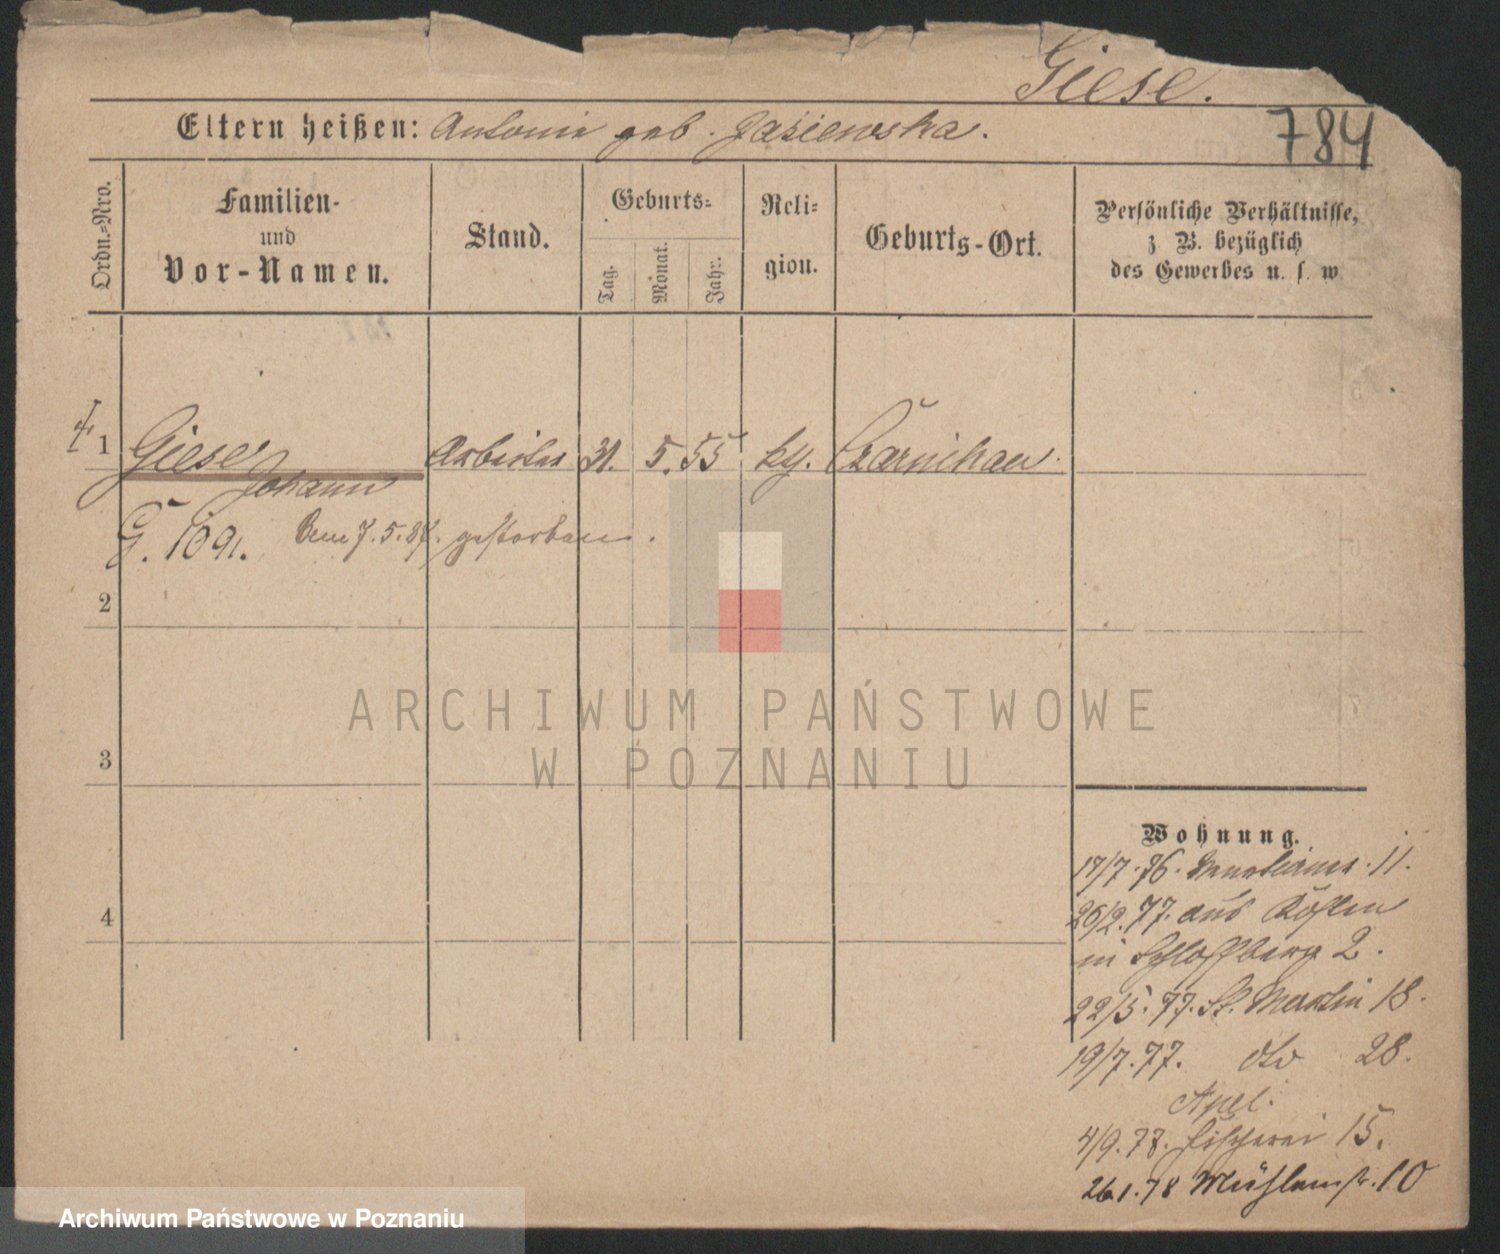 Giese.
784
Eltern heißen: Antonie geb. Jasiewska.
Ordn.-Nro.
Familien-
und
Vor-Namen.
Stand.
Geburts-
Tag.
Monat.
Jahr.
Reli-
gion.
Geburts-Ort.
Persönliche Verhältnisse,
z. B. bezüglich
des Gewerbes u. s. w.
1 Giese Arbeiter 31. 5. 55 kg. Czarnikau.
Johann
G. 1691. Am 7.5.87. gestorben.
2
3
4
Wohnung.
17/7.76. 11.
26/2.77. aus
in Schloßberg 2.
22/5.77. St. Martin 18.
19/7.77. dto 28.
Apel.
4/9.78. Fischerei 15.
26.1.78 Mühlenstr. 10
ARCHIWUM PAŃSTWOWE
W POZNANIU
Archiwum Państwowe w Poznaniu